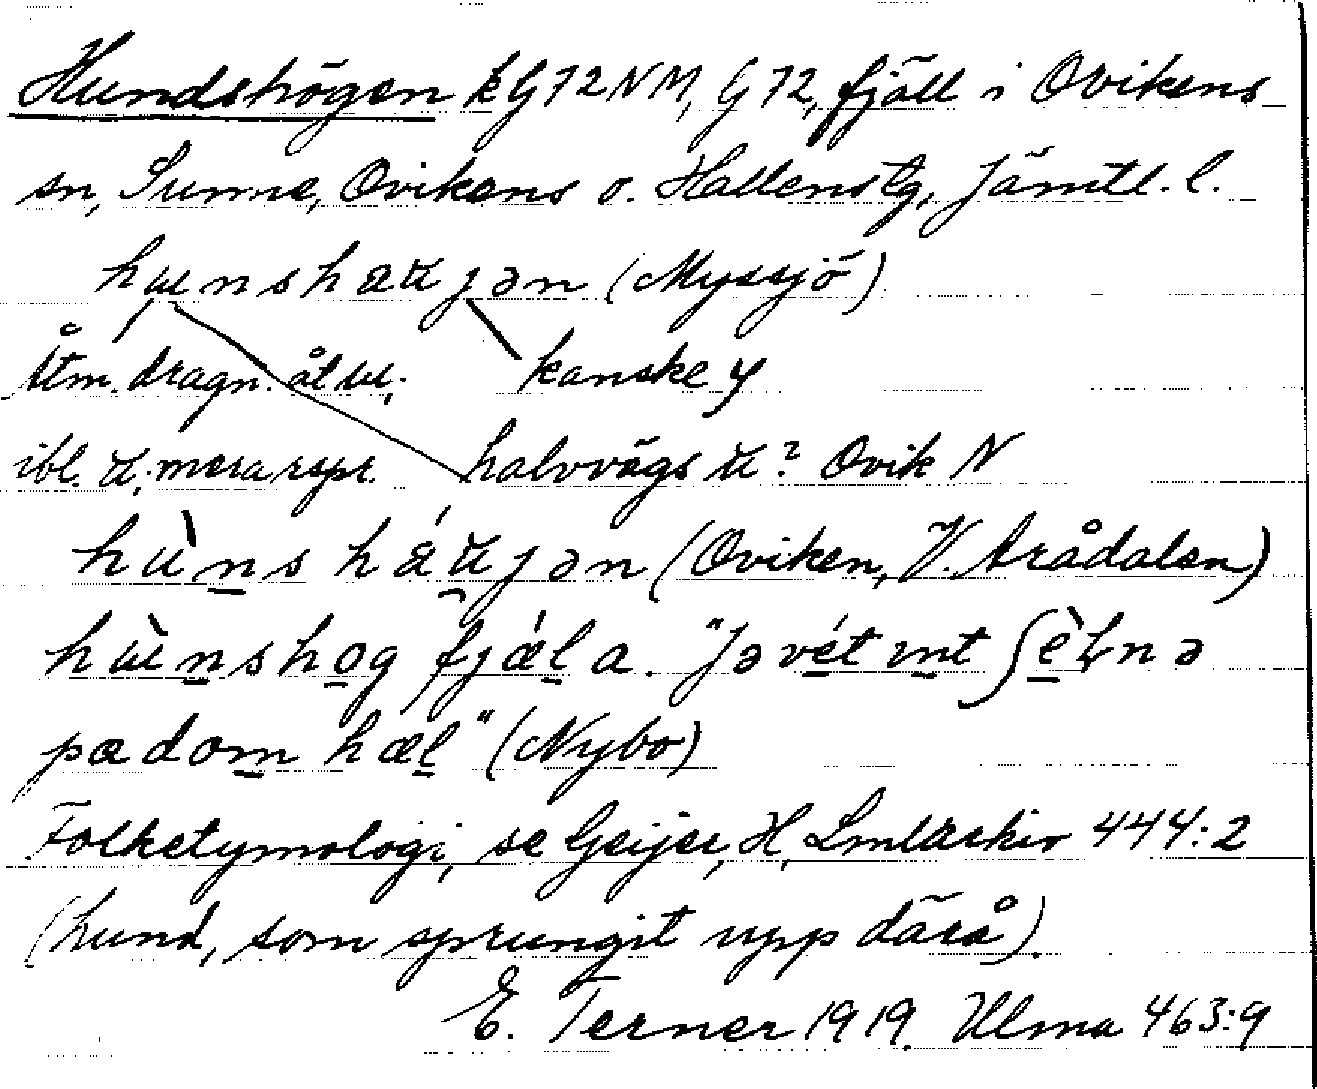 Hundshögen kG72NM, G72, fjäll i Ovikens
sn, Sunne, Ovikens o. Hallens tg, Jämtl. l.
hɯnshaʉjən (Myssjö)
åtm. dragn. åt ɯ; kanske y
ibl. ʉ; mera repr. halvvägs ʉ? Ovik N
hùns háʉjən (Oviken, V. Arådalen)
hɯ̀nshog fjǽla. "Jə vét int ʃèɽnə
pa dom hæl" (Nybo)
Folketymologi, se Geijer, H, Lmlarkiv 444:2
(hund, som sprungit upp därå).
E. Terner 1919. Ulma 463:9